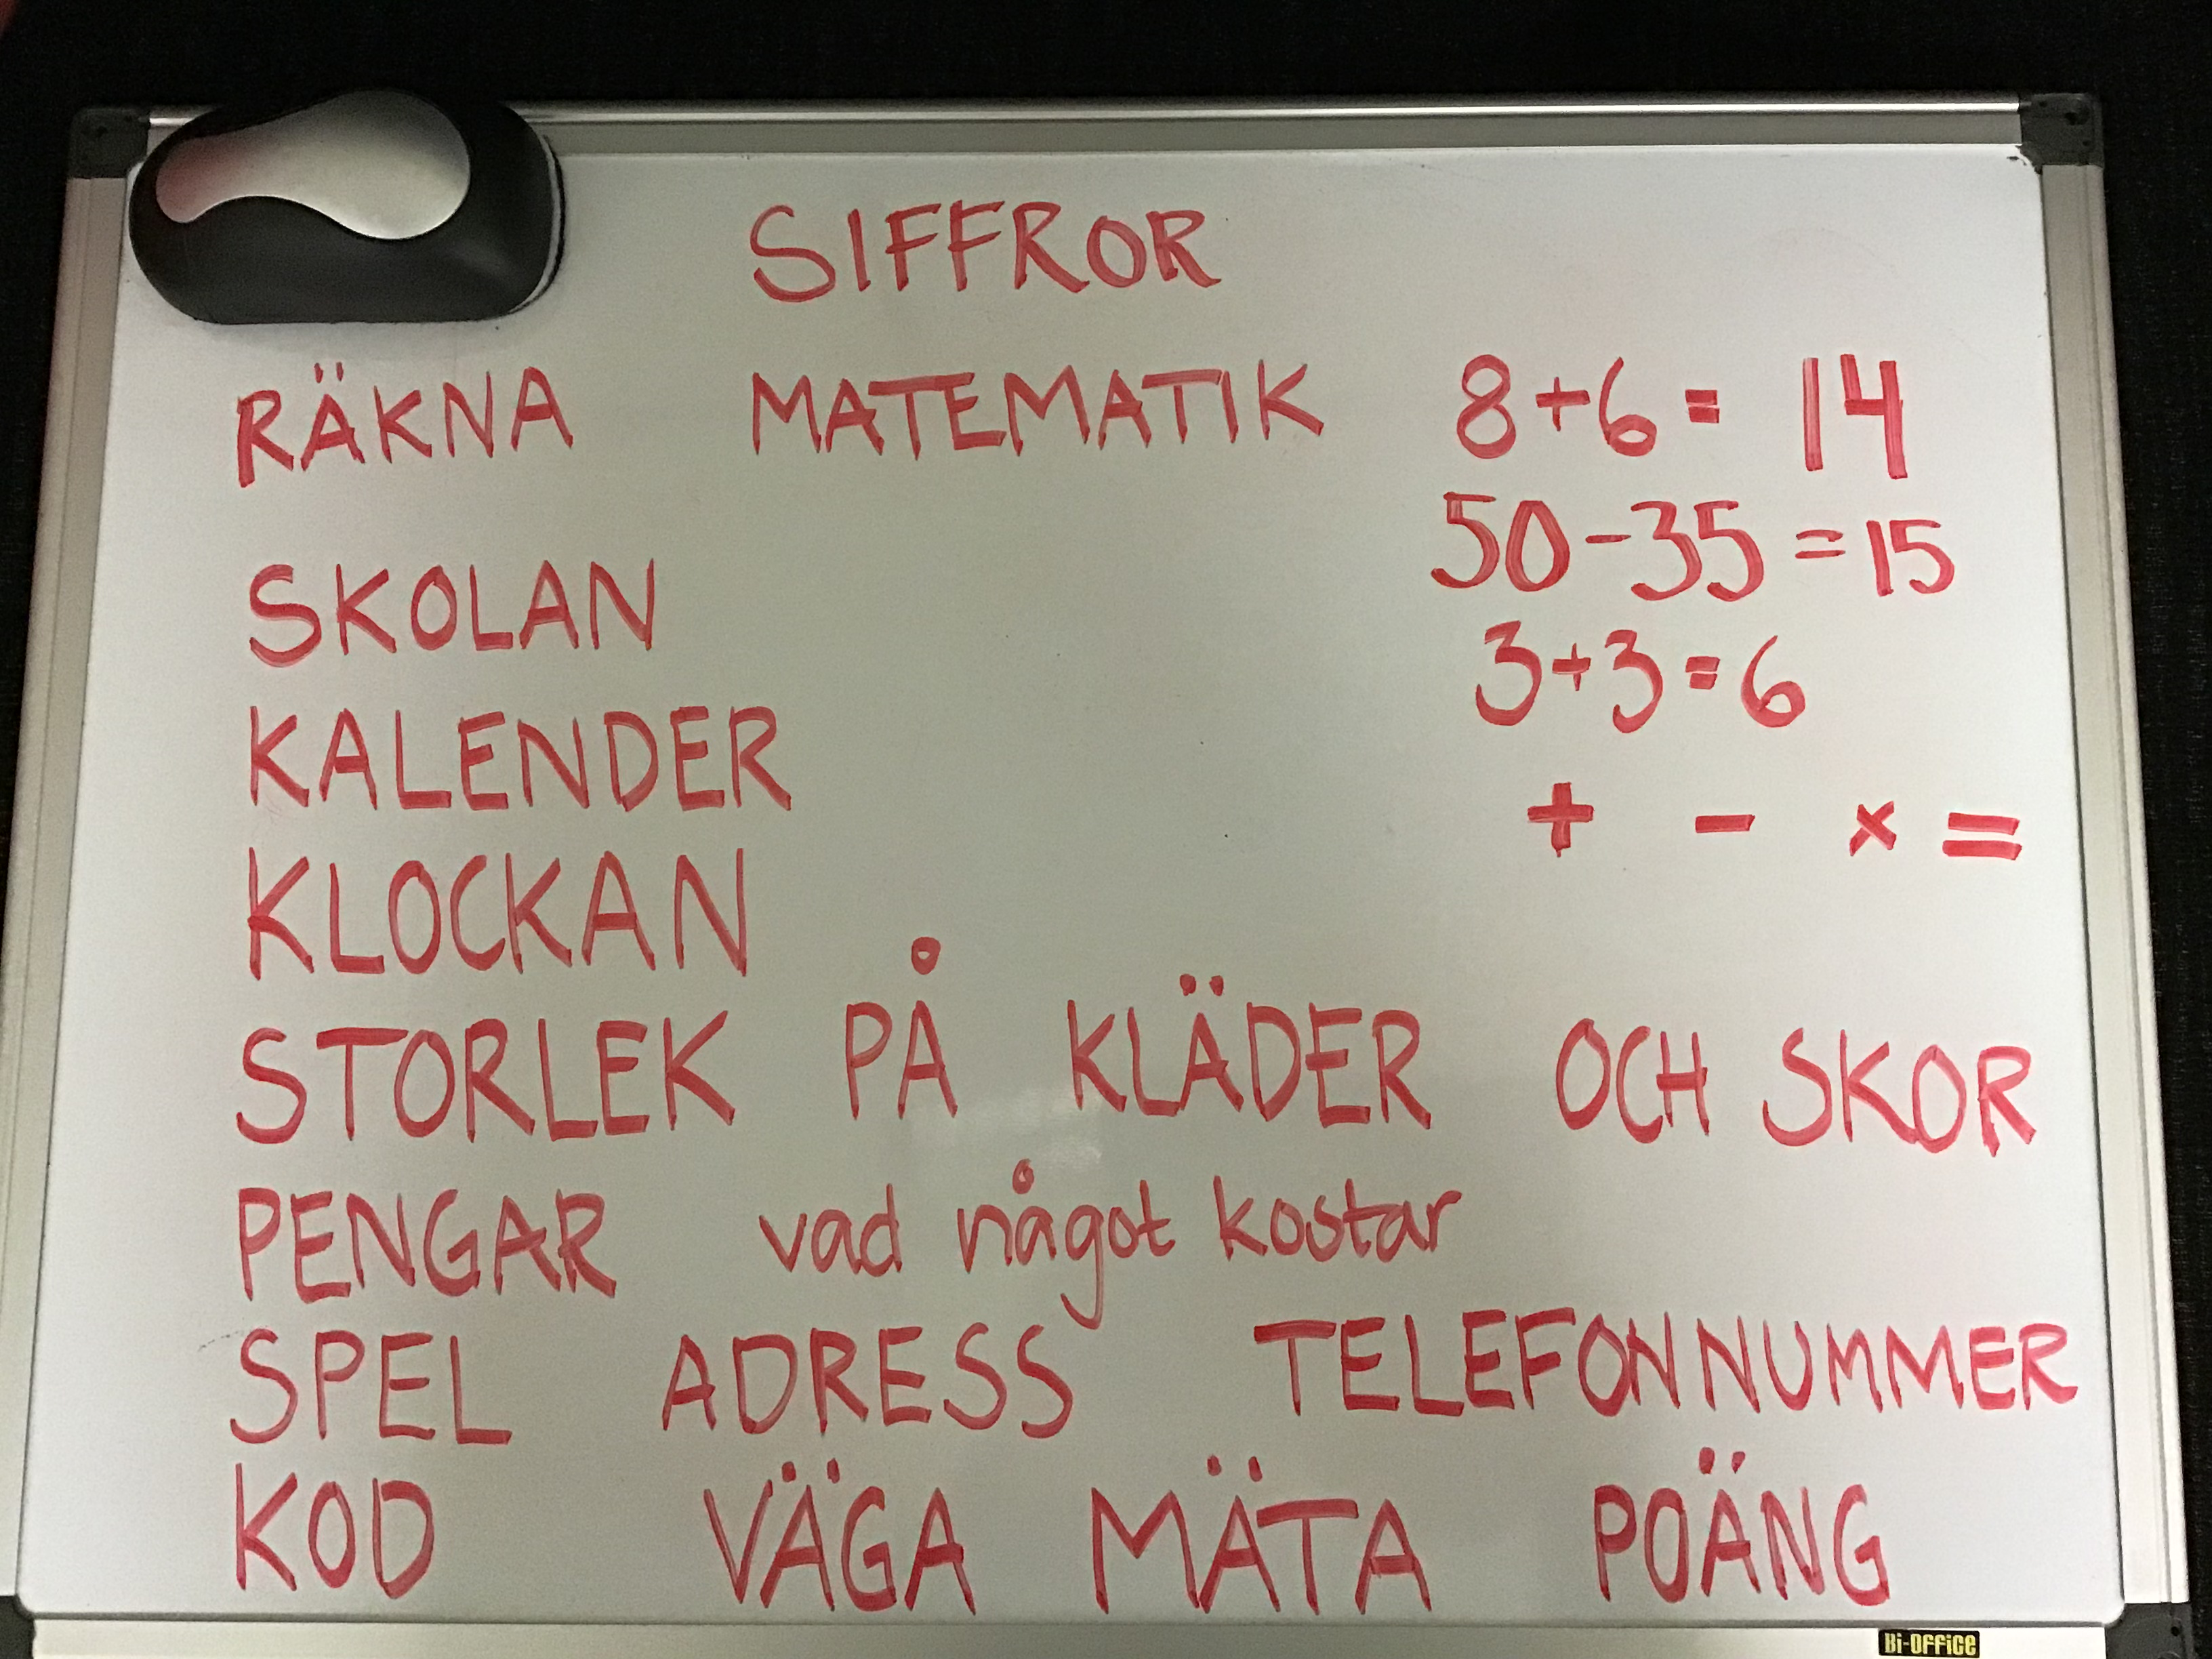 SIFFROR
RÄKNA MATEMATIK 8+6= 14
50-35=15
SKOLAN
3+3=6
KALENDER
+ - × =
KLOCKAN
STORLEK PÅ KLÄDER OCH SKOR
PENGAR vad något kostar
SPEL ADRESS TELEFONNUMMER
KOD VÄGA MÄTA POÄNG
Bi-OFFiCE